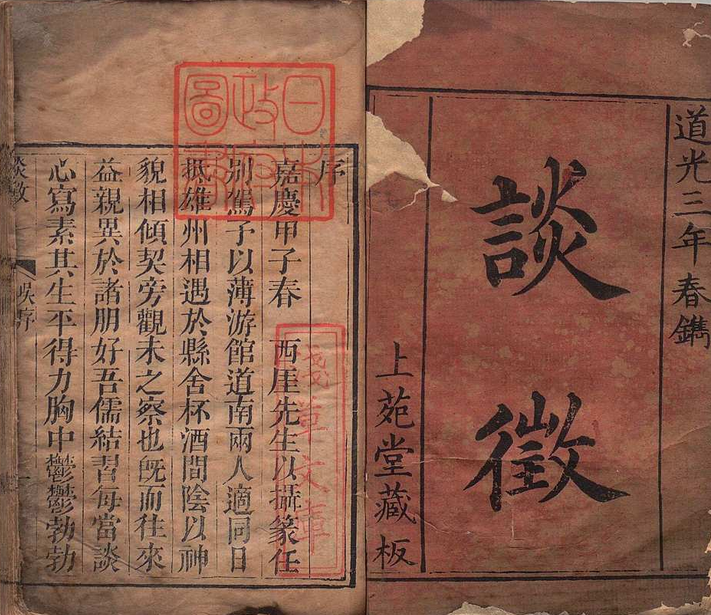 道光三年春鐫
談徵
上苑堂藏板
序
嘉慶甲子春 西厓先生以攝篆任
別駕予以薄游館道南兩人適同日
抵雄州相遇於縣舍杯酒間陰以神
貌相傾契旁觀未之察也既而往來
益親異於諸朋好吾儒結習每當談
心寫素其生平得力胸中鬱鬱勃勃
談徵
吳序
一